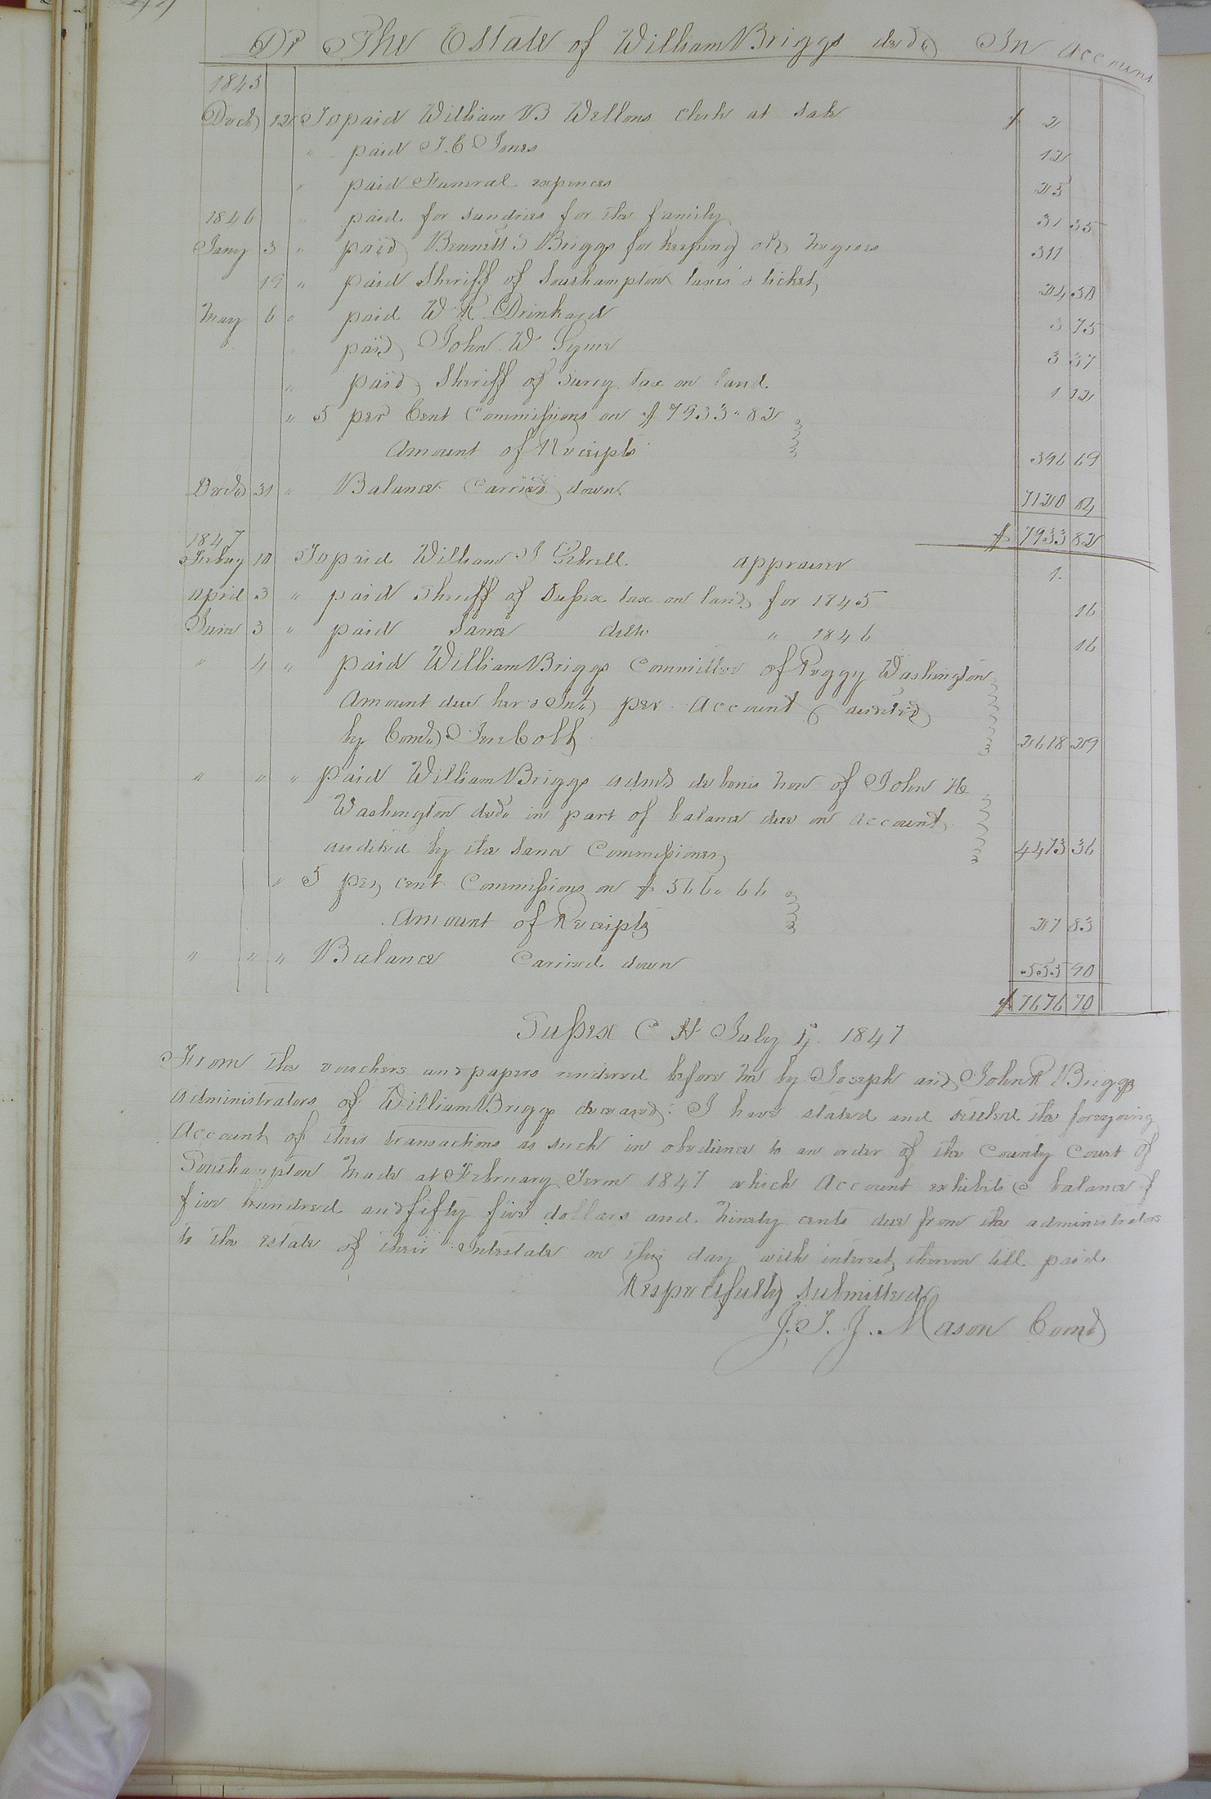 Dr The Estate of William Briggs decd, In account
1845
Decb, 12 To paid William B Wellons clerk at sale $ 2
" paid J. C Jones 12
" paid Funeral expences 25
1846 " paid for sundries for the family 31 35
Jany 3 " paid, Bennett S Briggs for keeping old negroes
19 " paid Sheriff of Southampton taxes & tickets
May 6 " paid W R Drinkard 3 75
" paid, John W Syme 3 37
" paid, Sheriff of Surry tax on land 1 12
" 5 per Cent Commissions on $7933.82
Amount of Receipts 396 69
Decb 31 " Balance Carried, down 7120 04
$ 7933 82
1847
Febury 10 To paid William J appraiser 1.
April 3 " paid Sheriff of Sussex tax on land, for 1845 16
June 3 " paid Same ditto " 1846 16
" 4 " paid William Briggs Committee of Peggy Washington
Amount due her & Int, per Account, audited,
by Comr, 2618 29
" " " paid William Briggs admr de bonis non of John H
Washington decd in part of balance due on account,
audited by the same Commissioner, 4473 36
" 5 per, cent Commissions on $ 556.66
Amount of Receipts 27 83
" " " Balance Carried down 555 90
$ 7676 70
Sussex C H July 1, 1847
From the vouchers and papers rendered before me by Joseph and, John R Briggs
Administrators of William Briggs deceased: I have stated and settled the foregoing
Account, of their transactions as such in obedience to an order of the County Court of
Southampton made at February Term 1847 which Account exhibits a balance of
five hundred and fifty five dollars and ninety cents due from the administrators
to the estate of their Intestate on this day with interest, thereon till paid.
Respectfully submitted,
J. T. J. Mason Comr